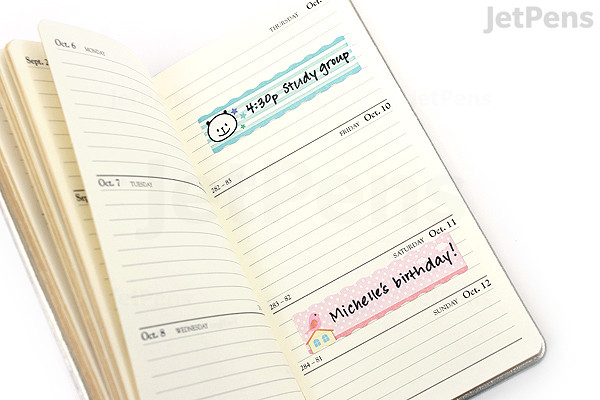 JetPens
Oct. 6 MONDAY
Oct. 7 TUESDAY
Oct. 8 WEDNESDAY
Sept. 2
THURSDAY Oct.
4:30p Study group
FRIDAY Oct. 10
282 – 83
SATURDAY Oct. 11
283 – 82
Michelle's birthday!
SUNDAY Oct. 12
284 – 81
JetPens